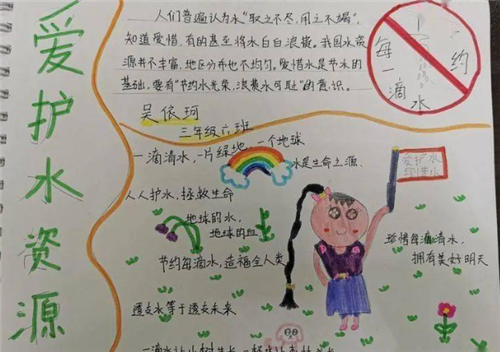 爱护水资源
人们普遍认为水“取之不尽,用之不竭”,
知道爱惜,有的甚至将水白白浪费。我国水资
源并不丰富,地区分布也不均匀。爱惜水是节水的
基础,要有“节约水光荣,浪费水可耻”的意识。
每一滴水
约
吴依珂
三年级六班
一滴清水,一片绿地,一个地球
水是生命之源
爱护水
人人护水,拯救生命
地球的水,
地球的血
节约每滴水,造福全人类
珍惜每滴清水,
拥有美好明天
透支水等于透支未来